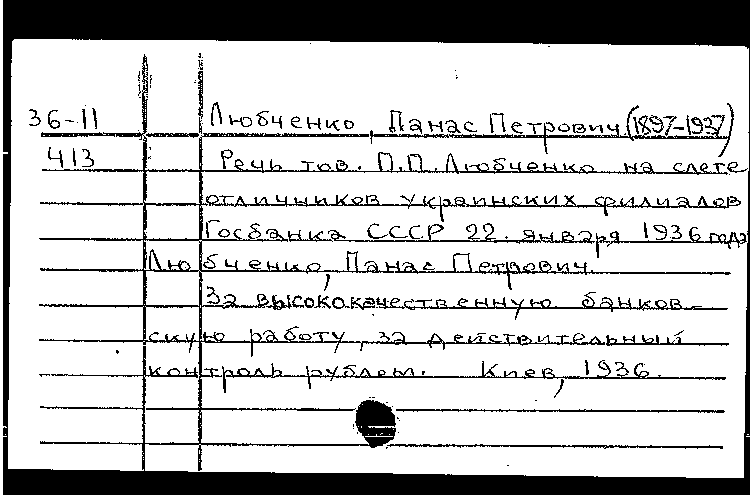 36-11 Любченко, Панас Петрович (1897-1937)
413 Речь тов. П.П. Любченко на слете
отличников украинских филиалов
Госбанка СССР 22. января 1936 года
Любченко, Панас Петрович.
За высококачественную банков-
скую работу, за действительный
контроль рублем. Киев, 1936.